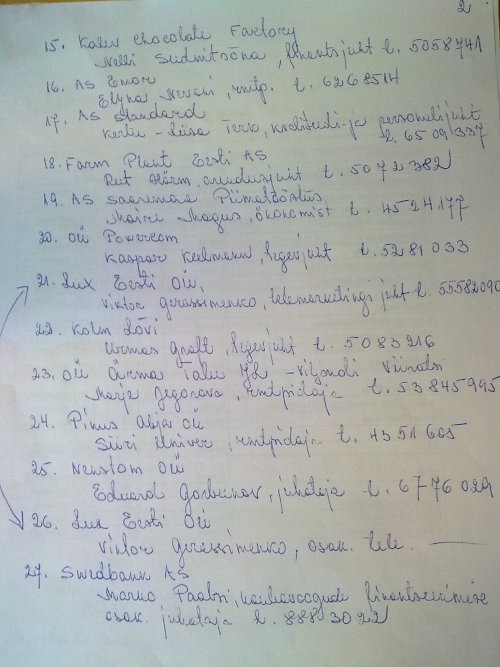 2
15. Kalev Chocolate Factory
Nelli Sudnitsõna, finantsjuht t. 5058741
16. AS Emor
rmtp. t. 6268514
17. AS Standard
Kertu-Liisa kvaliteedi-ja personalijuht
t. 6509337
18. Farm Plant Eesti AS
Rut arendusjuht t. 5072382
19. AS Saaremaa Piimatööstus
Maire Magus, ökonomist t. 4524177
20. OÜ Powercom
Kaspar Kulmann, tegevjuht t. 5281033
21. Lux Eesti OÜ,
Viktor Gerassimenko, telemarketingi juht t. 55582090
22. Kolm Lõvi
Urmas tegevjuht t. 5083216
23. OÜ Ärma Talu - Viljandi Viiratsi
Maija Jegorova, rmtpidaja t. 53845945
24. Pinus Abja OÜ
Siiri rmtpidaja t. 4351665
25. OÜ
Eduard Gorbunov, juhataja t. 6776029
26. Lux Eesti OÜ,
Viktor Gerassimenko, osak. tele.
27. Swedbank AS
Marko kaubavoogude finantseerimise
osak. juhataja t. 8883022